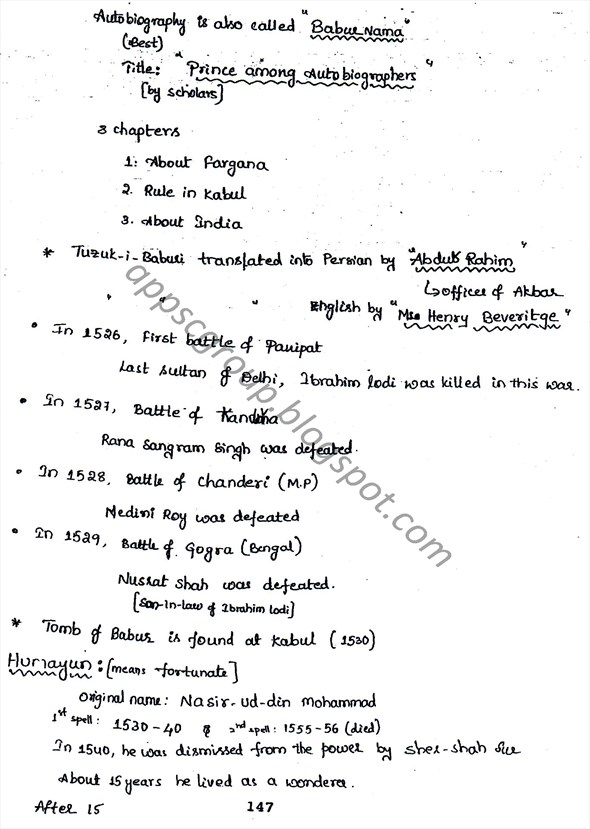 Autobiography is also called "Babur Nama"
(Best)
Title: "Prince among Autobiographers"
[by scholars]
3 chapters
1: About Fargana
2. Rule in Kabul
3. About India
* Tuzuk-i-Baburi translated into Persian by "Abdur Rahim"
↳officer of Akbar
" " " English by "Mrs Henry Beveritge"
• In 1526, First battle of Panipat
Last Sultan of Delhi, Ibrahim lodi was killed in this war.
• In 1527, Battle of
Rana Sangram Singh was defeated.
• In 1528, Battle of Chanderi (M.P)
Medini Roy was defeated
• In 1529, Battle of Gogra (Bengal)
Nusrat Shah was defeated.
[Son-In-law of Ibrahim lodi]
* Tomb of Babur is found at Kabul (1530)
Humayun: [means fortunate]
Original name: Nasir-ud-din Mohammad
1st spell: 1530-40 & 2nd spell: 1555-56 (died)
In 1540, he was dismissed from the power by sher-shah sur
About 15 years he lived as a wonderer.
After 15
147
appscgroup.blogspot.com